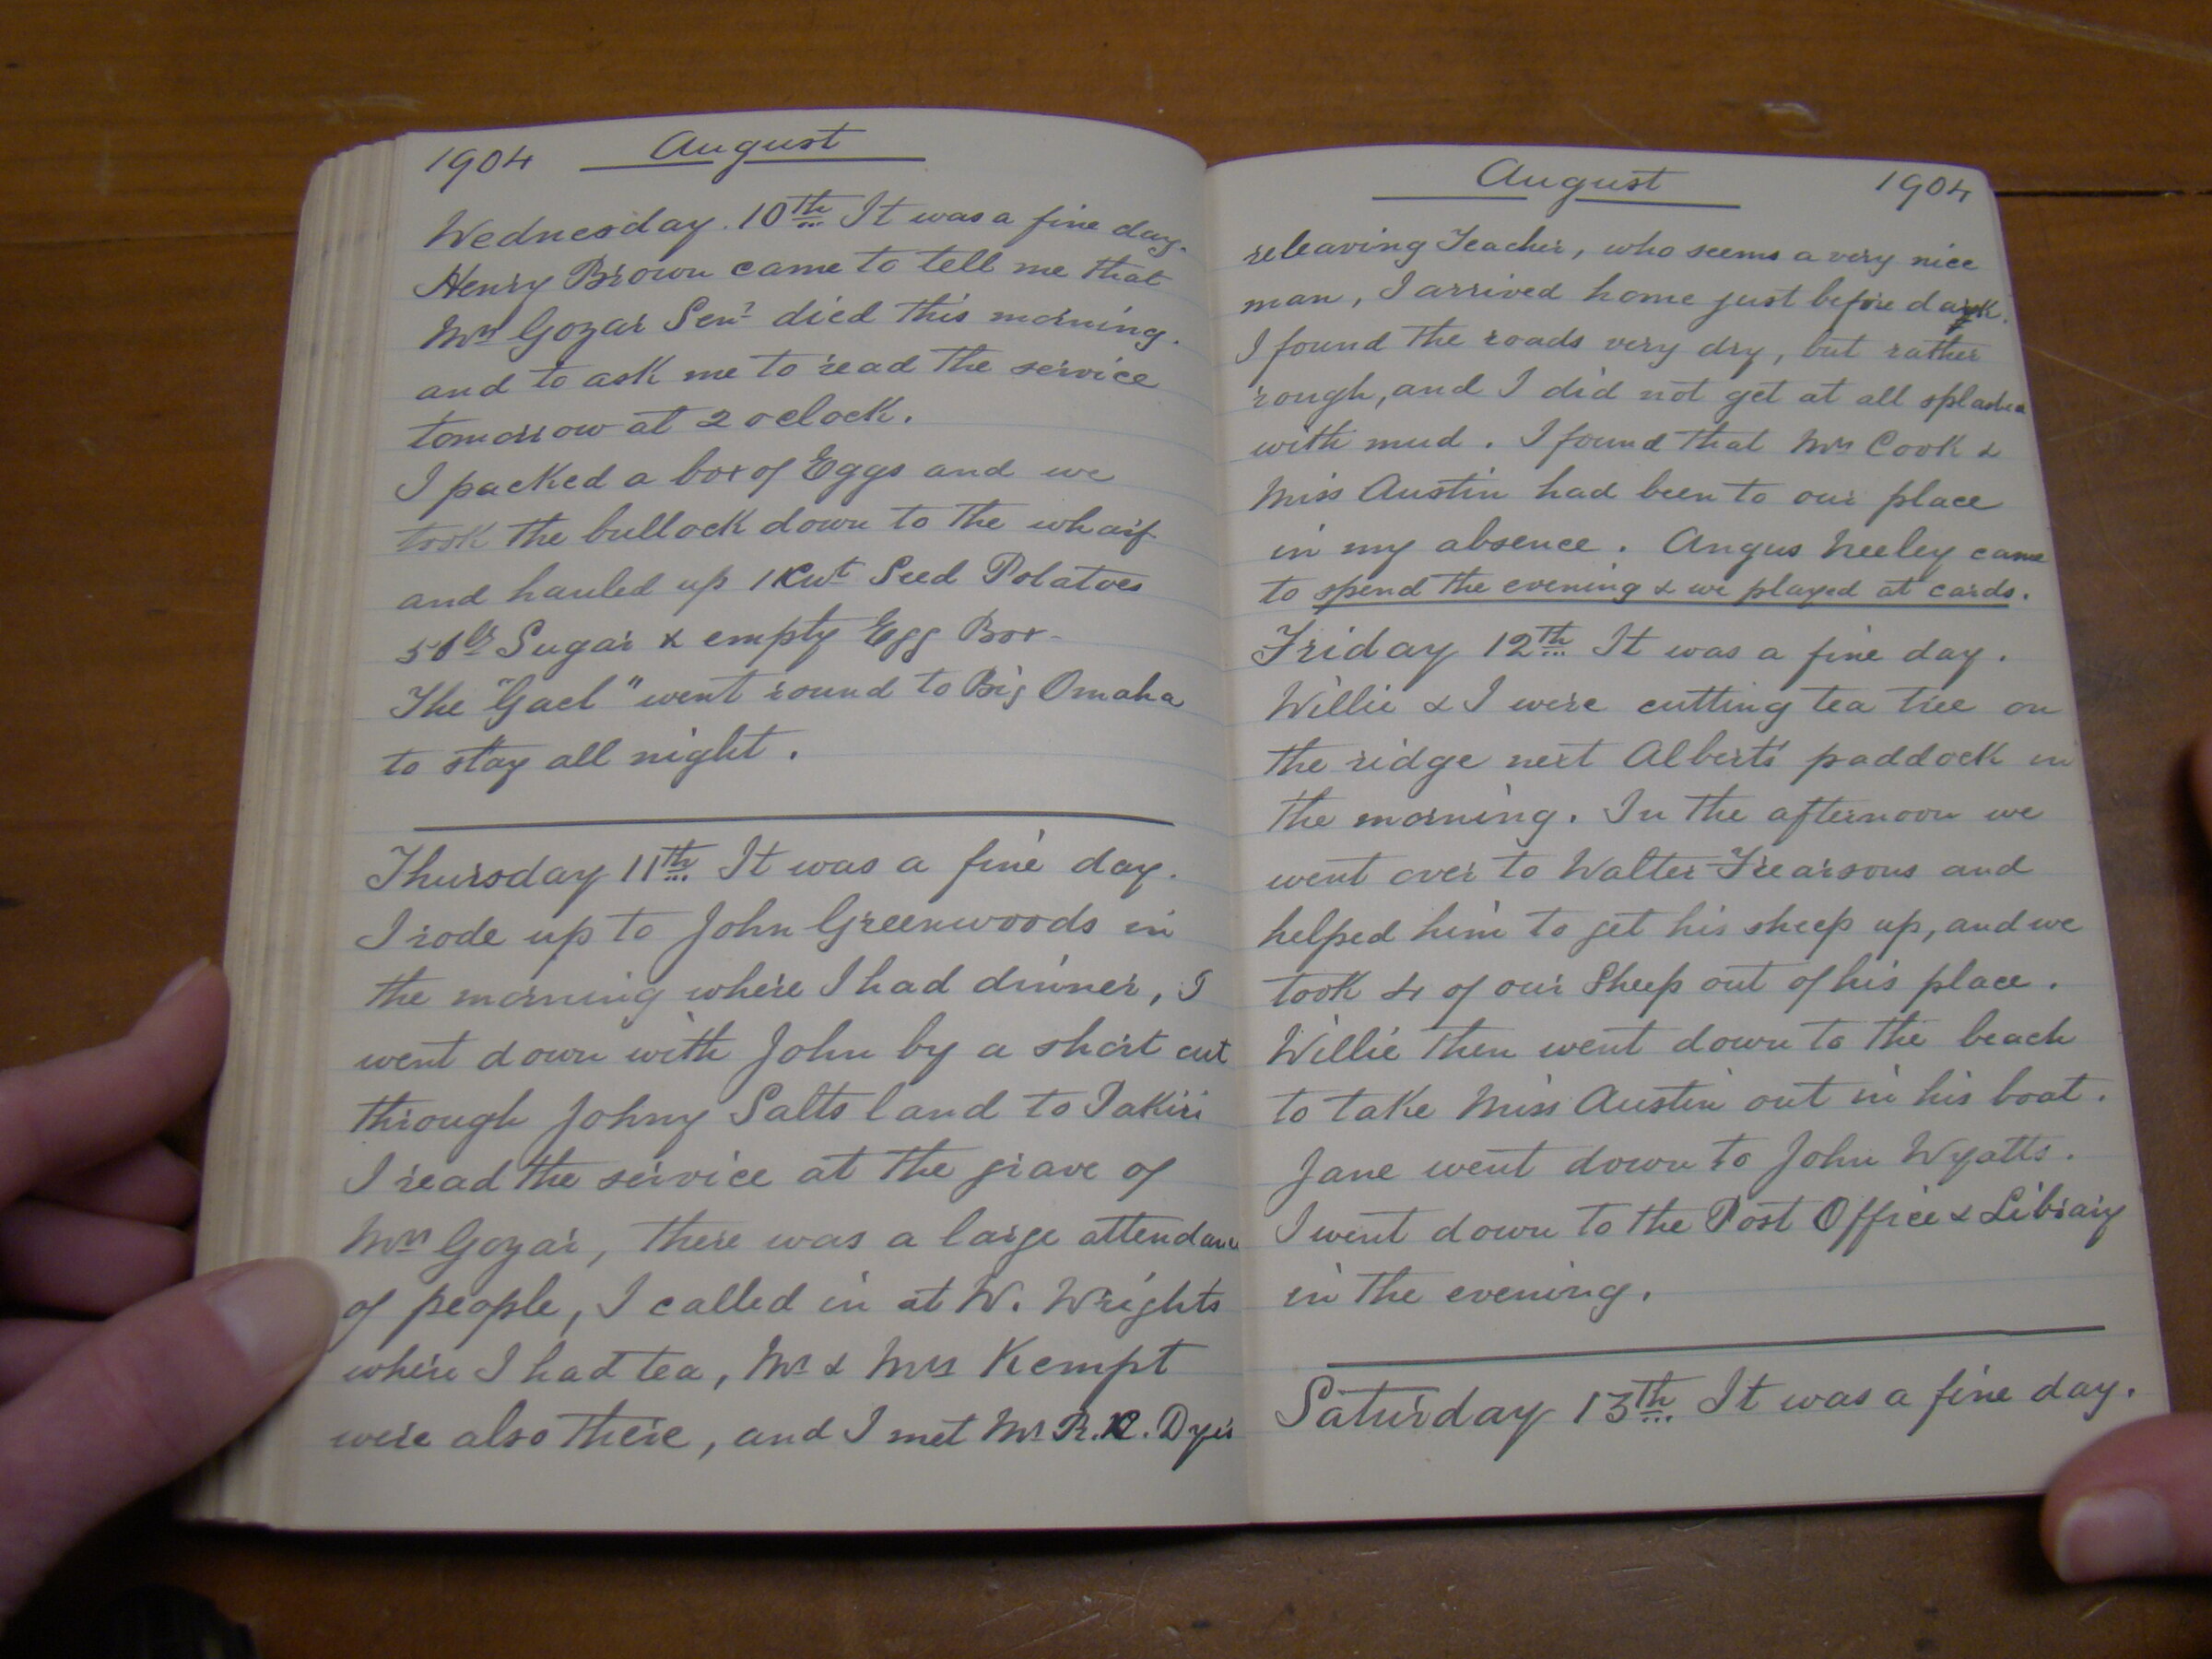 1904 August
Wednesday. 10th It was a fine day.
Henry Brown came to tell me that
Mrs Gozar Senr died this morning.
and to ask me to read the service
tomorrow at 2 oclock.
I packed a box of Eggs and we
took the bullock down to the wharf
and hauled up 1 Cwt Seed Potatoes
Sugar & empty Egg Box
The "Gael" went round to Big Omaha
to stay all night.
Thursday 11th It was a fine day.
I rode up to John Greenwoods in
the morning where I had dinner, I
went down with John by a short cut
through Johny Salts land to
I read the service at the grave of
Mrs Gozar, there was a large attendance
of people, I called in at W. Wrights
where I had tea, Mr & Mrs Kempt
were also there, and I met Mr R. R. Dyer
August 1904
releaving Teacher, who seems a very nice
man, I arrived home just before dark.
I found the roads very dry, but rather
rough, and I did not get at all splashed
with mud. I found that Mrs Cook &
Miss Austin had been to our place
in my absence. Angus Neeley came
to spend the evening & we played at cards.
Friday 12th It was a fine day.
Willie & I were cutting tea tree on
the ridge next Alberts' paddock in
the morning. In the afternoon we
went over to Walter Frearsons and
helped him to get his sheep up, and we
took 4 of our Sheep out of his place.
Willie then went down to the beach
to take Miss Austin out in his boat.
Jane went down to John Wyatts.
I went down to the Post Office & Library
in the evening.
Saturday 13th It was a fine day.